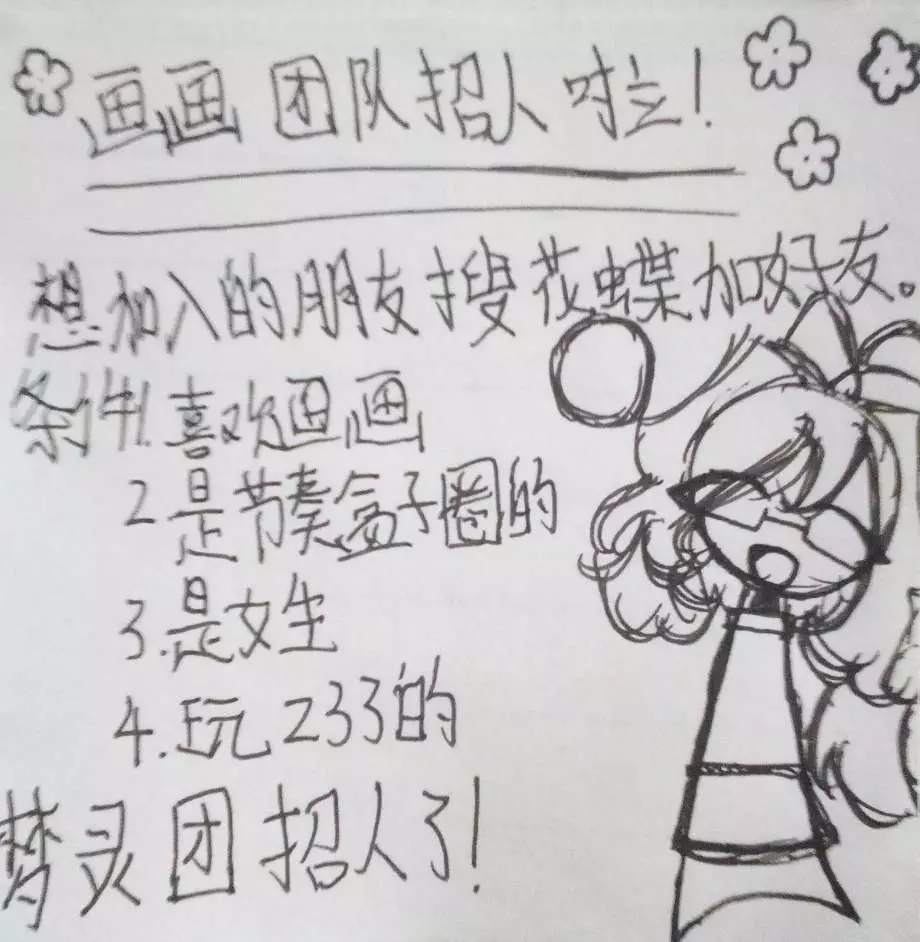 画画团队招人啦!
想加入的朋友搜花蝶加好友。
条件1.喜欢画画
2.是节奏盒子圈的
3.是女生
4.玩233的
梦灵团招人了!